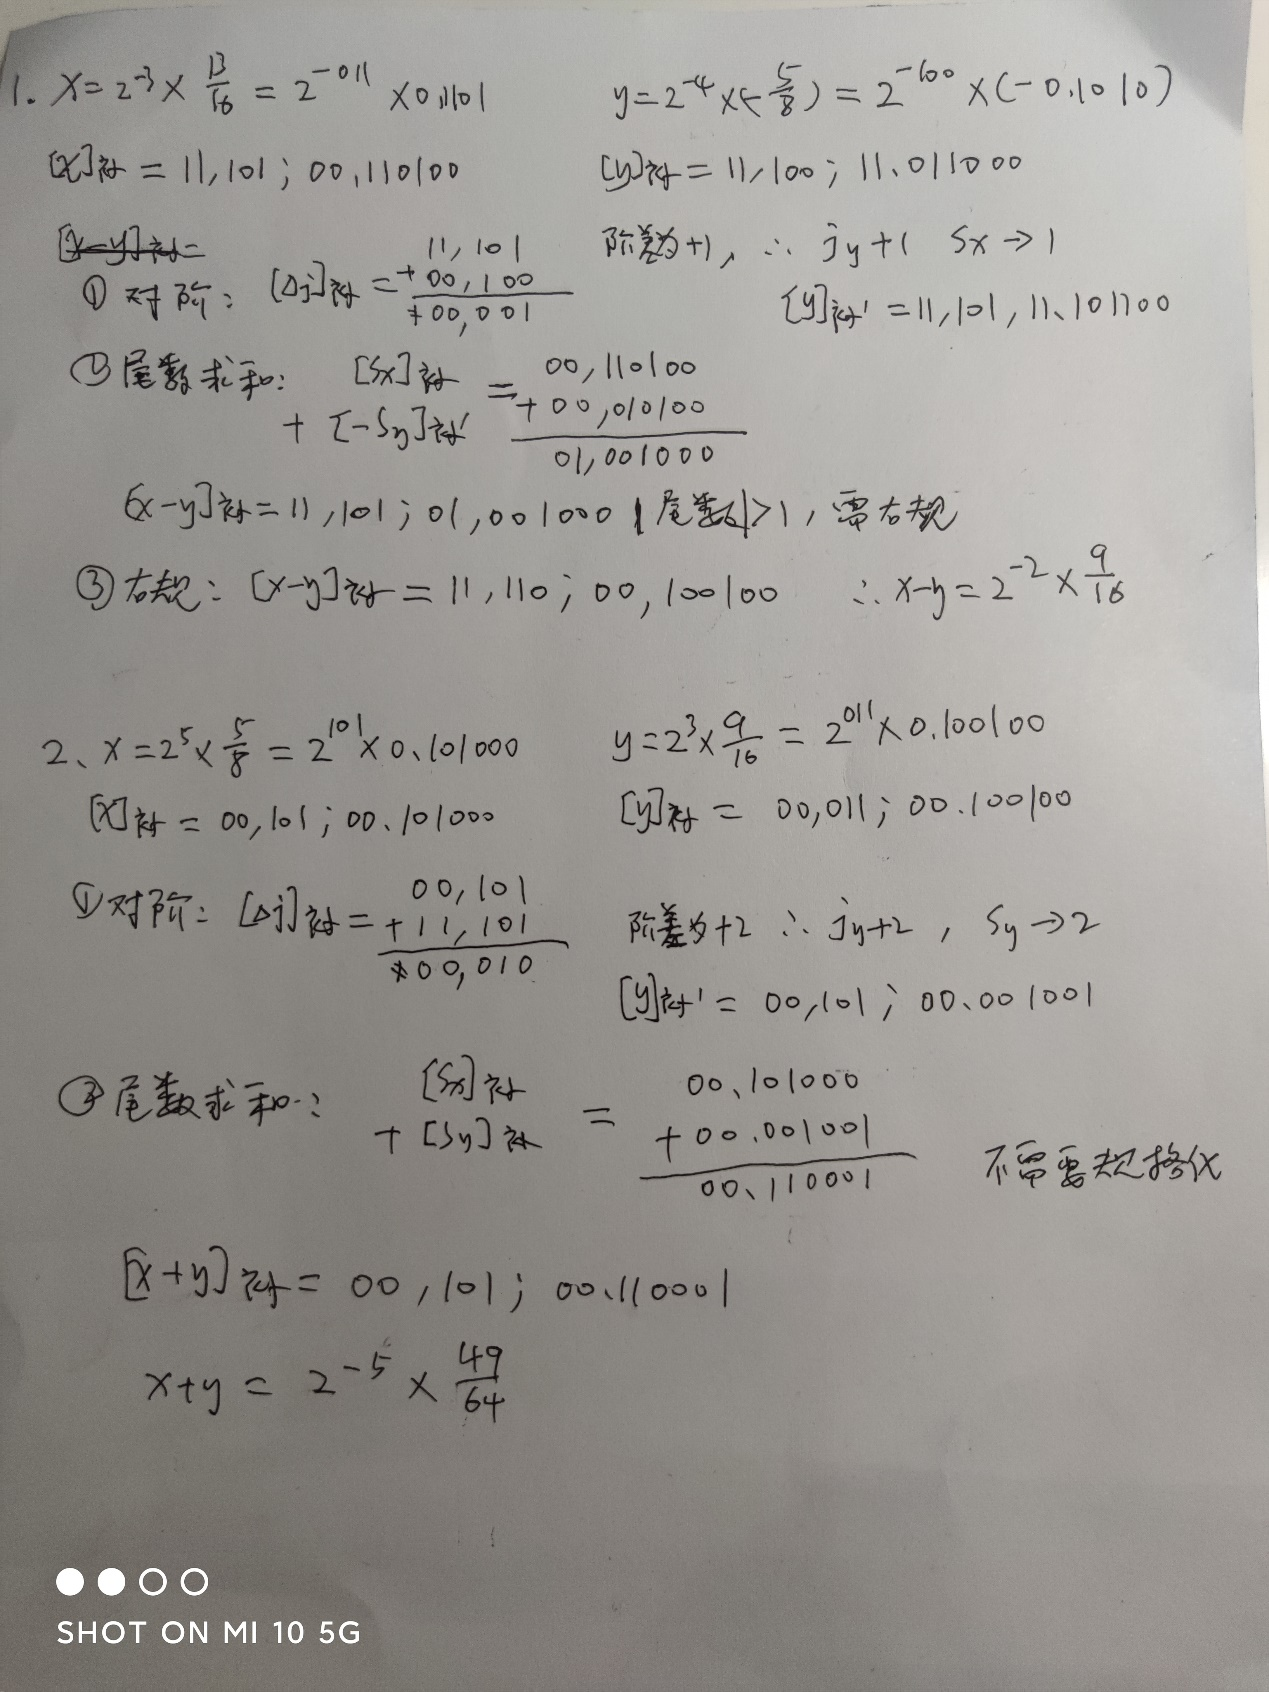 1. x=2⁻³×13/16=2^-011×0.1101 y=2⁻⁴×(-5/8)=2^-100×(-0.1010)
[x]补=11,101;00,110100 [y]补=11,100;11.011000
[x-y]补=
①对阶:[Δj]补=11,101 阶差为+1,∴jy+1 Sx→1
+00,100
00,001 [y]补'=11,101,11.101100
②尾数求和:[Sx]补=00,110100
+[-Sy]补' +00,010100
01,001000
[x-y]补=11,101;01,001000 |尾数|>1,需右规
③右规:[x-y]补=11,110;00,100100 ∴x-y=2⁻²×9/16
2、x=2⁵×5/8=2^101×0.101000 y=2³×9/16=2^011×0.100100
[x]补=00,101;00.101000 [y]补=00,011;00.100100
①对阶:[Δj]补=00,101
+11,101 阶差为+2∴jy+2,Sy→2
00,010
[y]补'=00,101;00.001001
②尾数求和:[Sx]补=00.101000
+[Sy]补 +00.001001
00.110001 不需要规格化
[x+y]补=00,101;00.110001
x+y=2⁻⁵×49/64
SHOT ON MI 10 5G